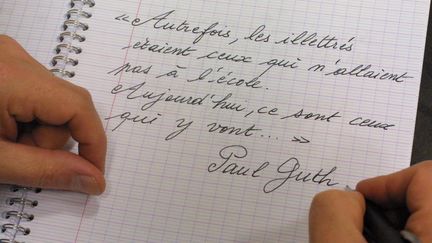 « Autrefois, les illettrés
étaient ceux qui n'allaient
pas à l'école.
Aujourd'hui, ce sont ceux
qui y vont... »
Paul Guth